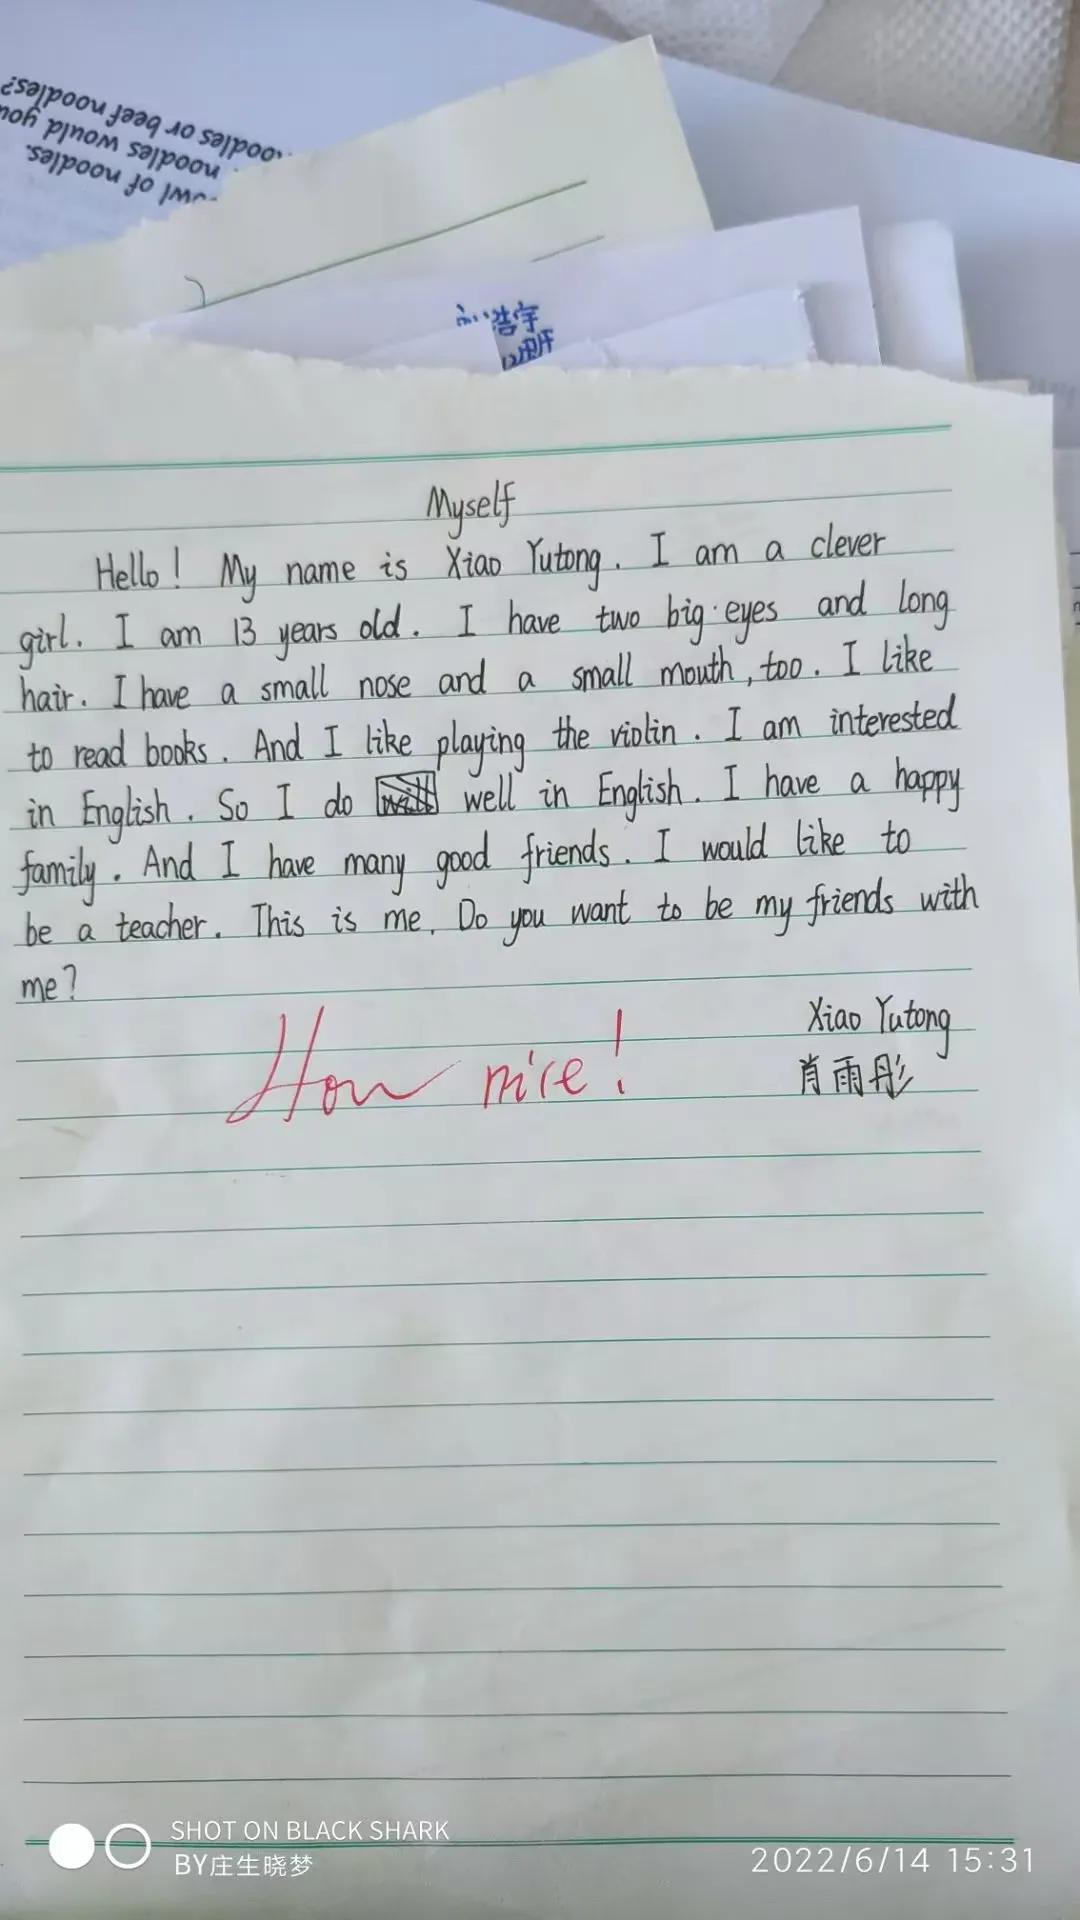 noodles or beef noodles?
noodles would you
of noodles.
浩宇
Myself
Hello! My name is Xiao Yutong. I am a clever
girl. I am 13 years old. I have two big eyes and long
hair. I have a small nose and a small mouth, too. I like
to read books. And I like playing the violin. I am interested
in English. So I do well in English. I have a happy
family. And I have many good friends. I would like to
be a teacher. This is me. Do you want to be my friends with
me?
How nice!
Xiao Yutong
肖雨彤
SHOT ON BLACK SHARK
BY庄生晓梦
2022/6/14 15:31